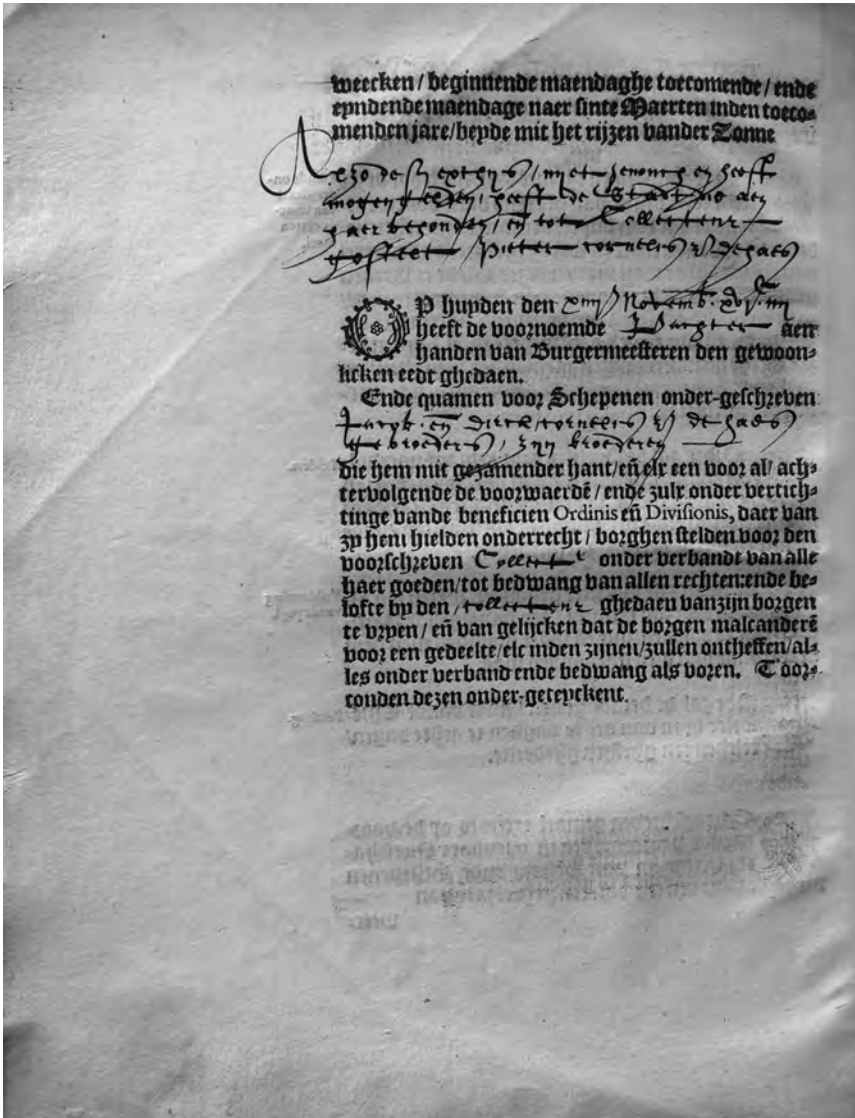 weecken / beginnende maendaghe toecomende / ende
eyndende maendage naer sinte Maerten inden toeco-
menden jare/beyde mit het rijzen vander Zonne
Alzo dese exchijs / niet genouch en heeft
mogen gelden, heeft de Stadt die aen
haer behouden, en̄ tot Collecteur
gestelt Pieter cornelis z de haes
OP huyden den xiiij Novemb.
heeft de voornoemde Pachter aen
handen van Burgermeesteren den gewoon-
licken eedt ghedaen.
Ende quamen voor Schepenen onder-geschreven
Jacob en̄ Dirck cornelis z de haes
gebroeders, zijn broederen
die hem mit gezamender hant/en̄ elx een voor al/ ach-
tervolgende de voorwaerdē / ende zulx onder vertich-
tinge vande beneficien Ordinis en̄ Divisionis, daer van
zy hem hielden onderrecht / borghen stelden voor den
voorschreven Collectr onder verbande van alle
haer goeden/tot bedwang van allen rechten:ende be-
lofte by den / collecteur ghedaen van zijn borgen
te vryen / en̄ van gelijcken dat de borgen malcanderē
voor een gedeelte/elc inden zijnen/zullen ontheffen/al-
les onder verband ende bedwang als voren. T'oor-
conden dezen onder-geteyckent.